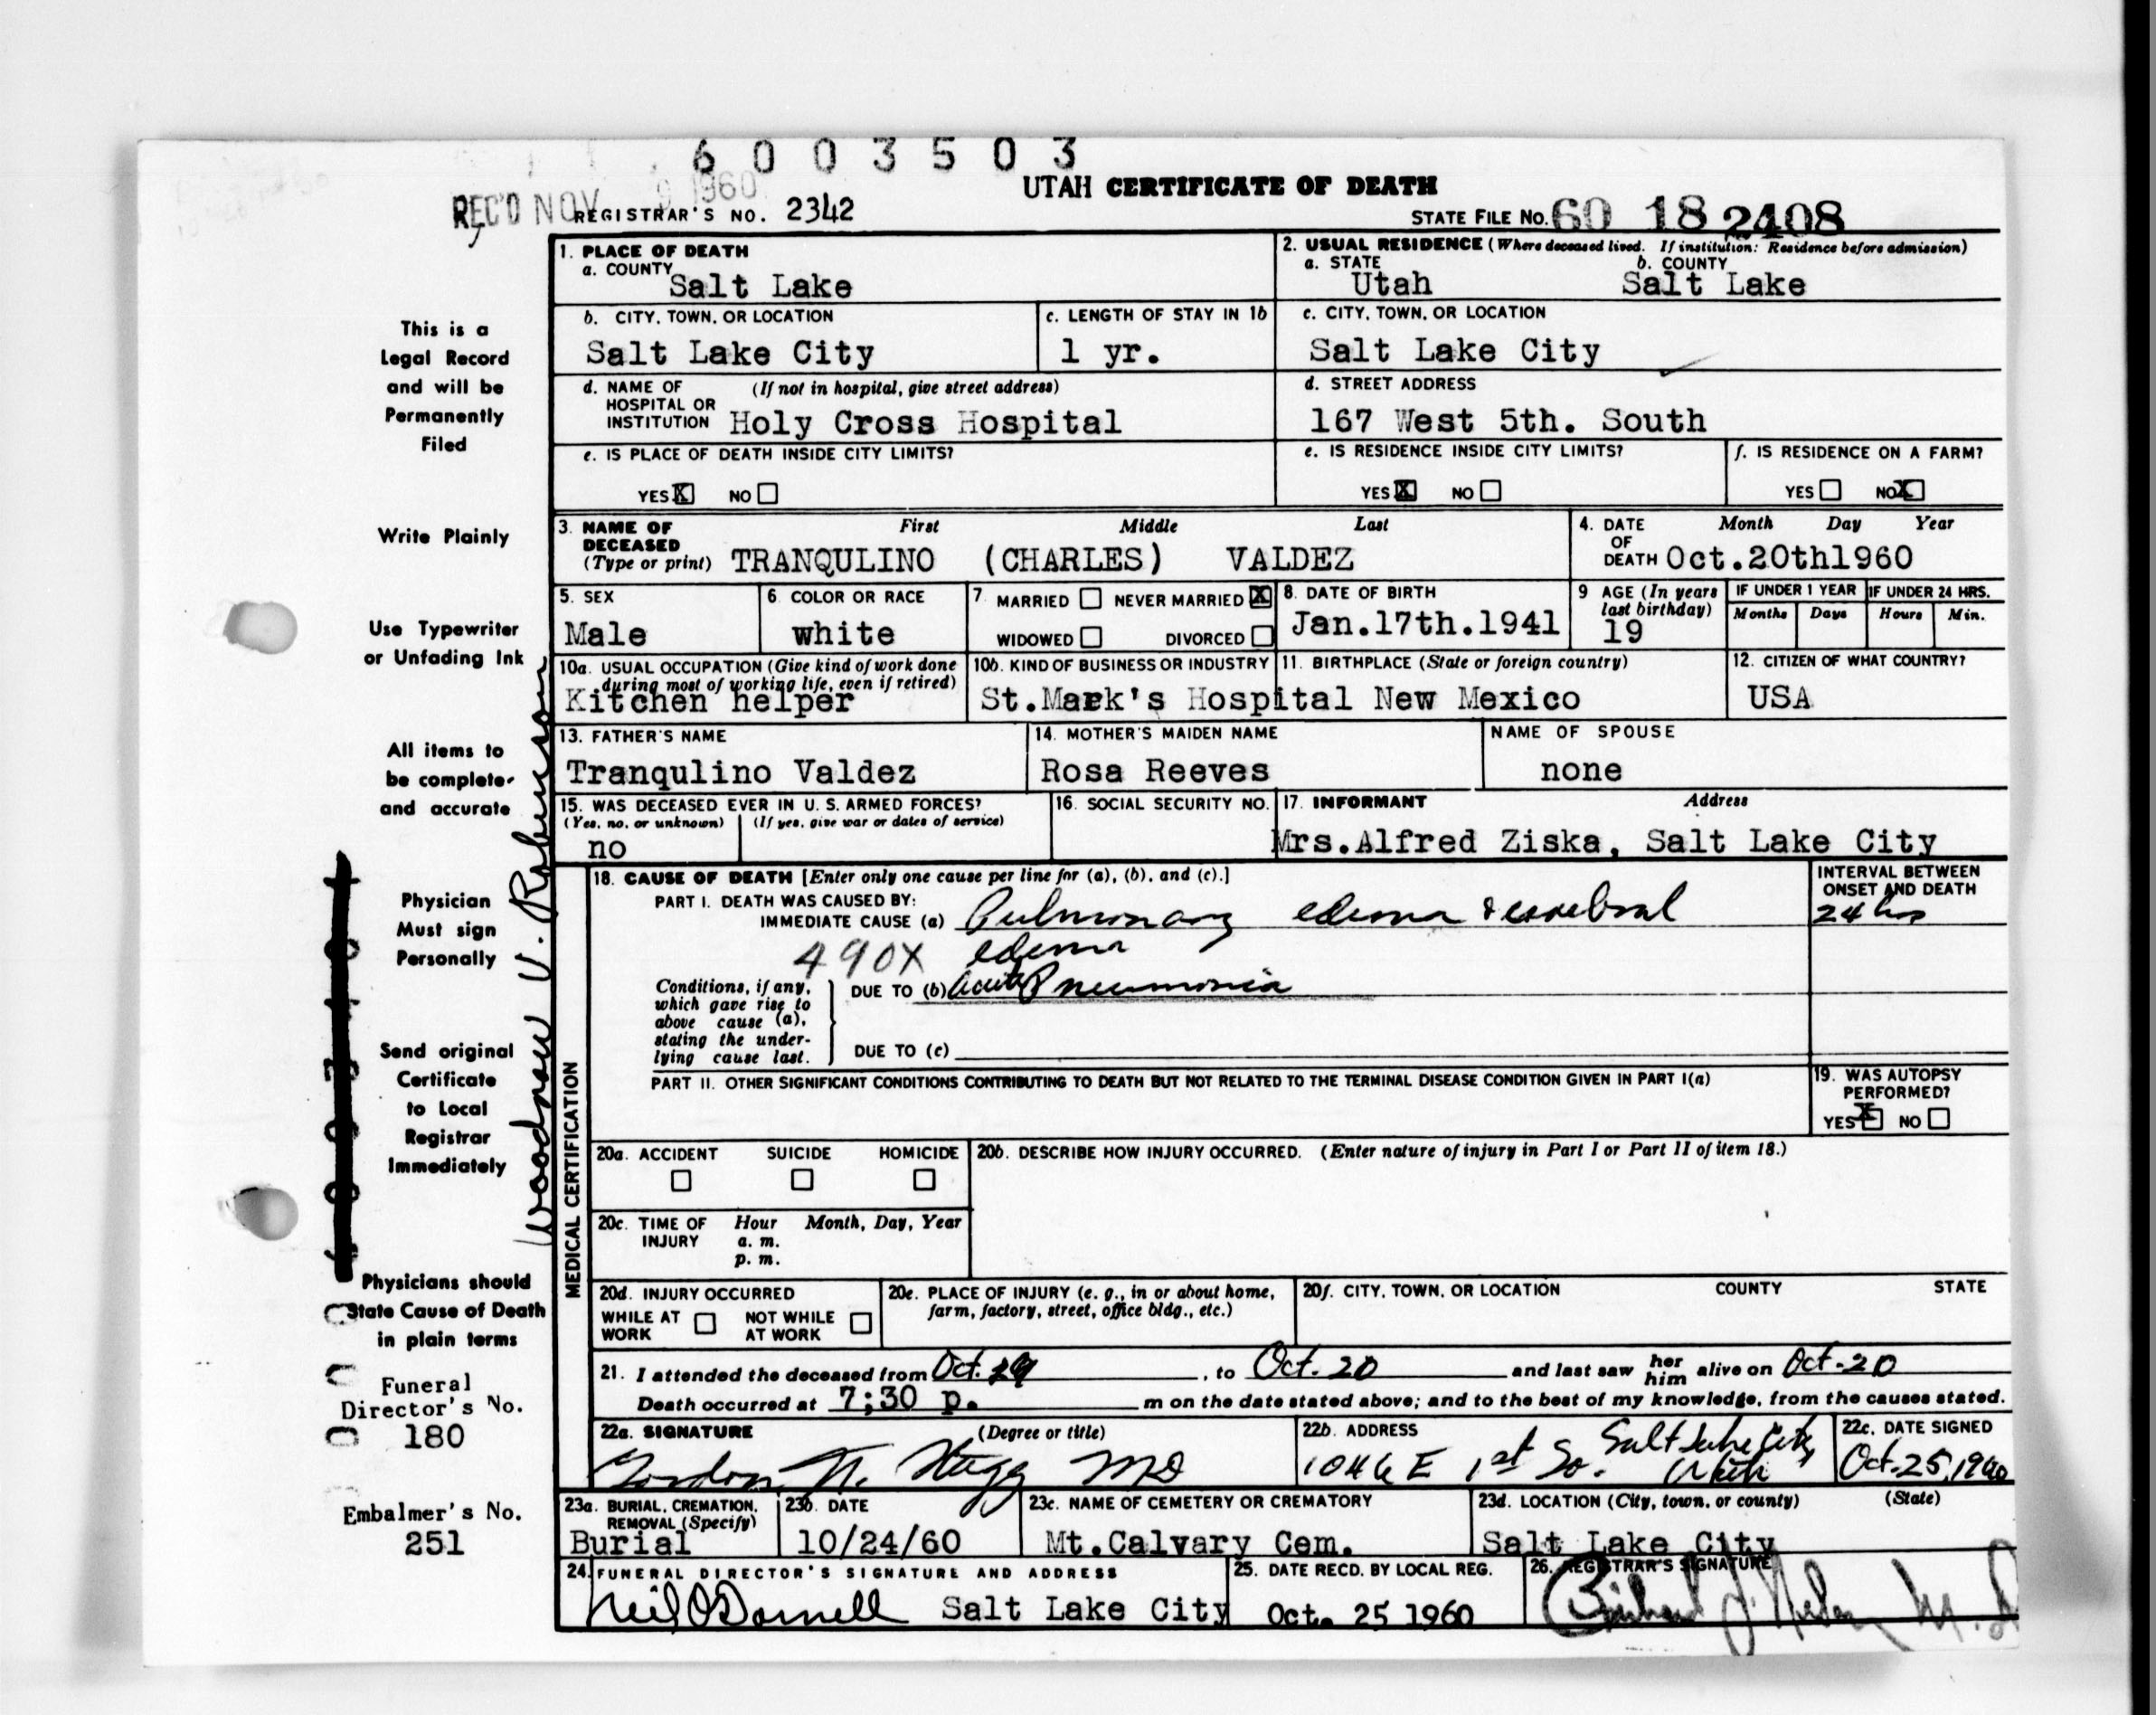 6 0 0 3 5 0 3
REC'D NOV 9 1960
UTAH CERTIFICATE OF DEATH
REGISTRAR'S NO. 2342
STATE FILE NO. 60 18 2408
1. PLACE OF DEATH
a. COUNTY Salt Lake
2. USUAL RESIDENCE (Where deceased lived. If institution: Residence before admission)
a. STATE Utah b. COUNTY Salt Lake
b. CITY, TOWN, OR LOCATION Salt Lake City
c. LENGTH OF STAY IN 1b 1 yr.
c. CITY, TOWN, OR LOCATION Salt Lake City
d. NAME OF HOSPITAL OR INSTITUTION (If not in hospital, give street address) Holy Cross Hospital
d. STREET ADDRESS 167 West 5th. South
e. IS PLACE OF DEATH INSIDE CITY LIMITS? YES X NO
e. IS RESIDENCE INSIDE CITY LIMITS? YES X NO
f. IS RESIDENCE ON A FARM? YES NO X
3. NAME OF DECEASED (Type or print) First Middle Last
TRANQULINO (CHARLES) VALDEZ
4. DATE OF DEATH Month Day Year
Oct.20th1960
5. SEX Male
6. COLOR OR RACE white
7. MARRIED NEVER MARRIED X WIDOWED DIVORCED
8. DATE OF BIRTH Jan.17th.1941
9 AGE (In years last birthday) 19
IF UNDER 1 YEAR Months Days
IF UNDER 24 HRS. Hours Min.
10a. USUAL OCCUPATION (Give kind of work done during most of working life, even if retired) Kitchen helper
10b. KIND OF BUSINESS OR INDUSTRY St.Mark's Hospital
11. BIRTHPLACE (State or foreign country) New Mexico
12. CITIZEN OF WHAT COUNTRY? USA
13. FATHER'S NAME Tranqulino Valdez
14. MOTHER'S MAIDEN NAME Rosa Reeves
NAME OF SPOUSE none
15. WAS DECEASED EVER IN U. S. ARMED FORCES?
(Yes, no, or unknown) (If yes, give war or dates of service)
no
16. SOCIAL SECURITY NO.
17. INFORMANT Address
Mrs.Alfred Ziska, Salt Lake City
MEDICAL CERTIFICATION
18. CAUSE OF DEATH [Enter only one cause per line for (a), (b), and (c).]
INTERVAL BETWEEN ONSET AND DEATH
PART I. DEATH WAS CAUSED BY:
IMMEDIATE CAUSE (a) Pulmonary edema & cerebral 24 hrs
490X edema
Conditions, if any, which gave rise to above cause (a), stating the underlying cause last.
DUE TO (b) Acute Pneumonia
DUE TO (c)
PART II. OTHER SIGNIFICANT CONDITIONS CONTRIBUTING TO DEATH BUT NOT RELATED TO THE TERMINAL DISEASE CONDITION GIVEN IN PART I(a)
19. WAS AUTOPSY PERFORMED? YES X NO
20a. ACCIDENT SUICIDE HOMICIDE
20b. DESCRIBE HOW INJURY OCCURRED. (Enter nature of injury in Part I or Part II of item 18.)
20c. TIME OF INJURY Hour a. m. p. m. Month, Day, Year
20d. INJURY OCCURRED WHILE AT WORK NOT WHILE AT WORK
20e. PLACE OF INJURY (e. g., in or about home, farm, factory, street, office bldg., etc.)
20f. CITY, TOWN, OR LOCATION COUNTY STATE
21. I attended the deceased from Oct. , to Oct. 20 and last saw her him alive on Oct-20
Death occurred at 7;30 p. m on the date stated above; and to the best of my knowledge, from the causes stated.
22a. SIGNATURE (Degree or title)
Gordon MD
22b. ADDRESS 1046 E 1st So. Salt Lake City Utah
22c. DATE SIGNED Oct. 25, 1960
23a. BURIAL, CREMATION, REMOVAL (Specify) Burial
23b. DATE 10/24/60
23c. NAME OF CEMETERY OR CREMATORY Mt.Calvary Cem.
23d. LOCATION (City, town, or county) (State) Salt Lake City
24. FUNERAL DIRECTOR'S SIGNATURE AND ADDRESS
Neil O'Donnell Salt Lake City
25. DATE RECD. BY LOCAL REG. Oct. 25 1960
26. REGISTRAR'S SIGNATURE
This is a
Legal Record
and will be
Permanently
Filed
Write Plainly
Use Typewriter
or Unfading Ink
All items to
be complete
and accurate
Physician
Must sign
Personally
Send original
Certificate
to Local
Registrar
Immediately
Physicians should
State Cause of Death
in plain terms
Funeral
Director's No.
180
Embalmer's No.
251